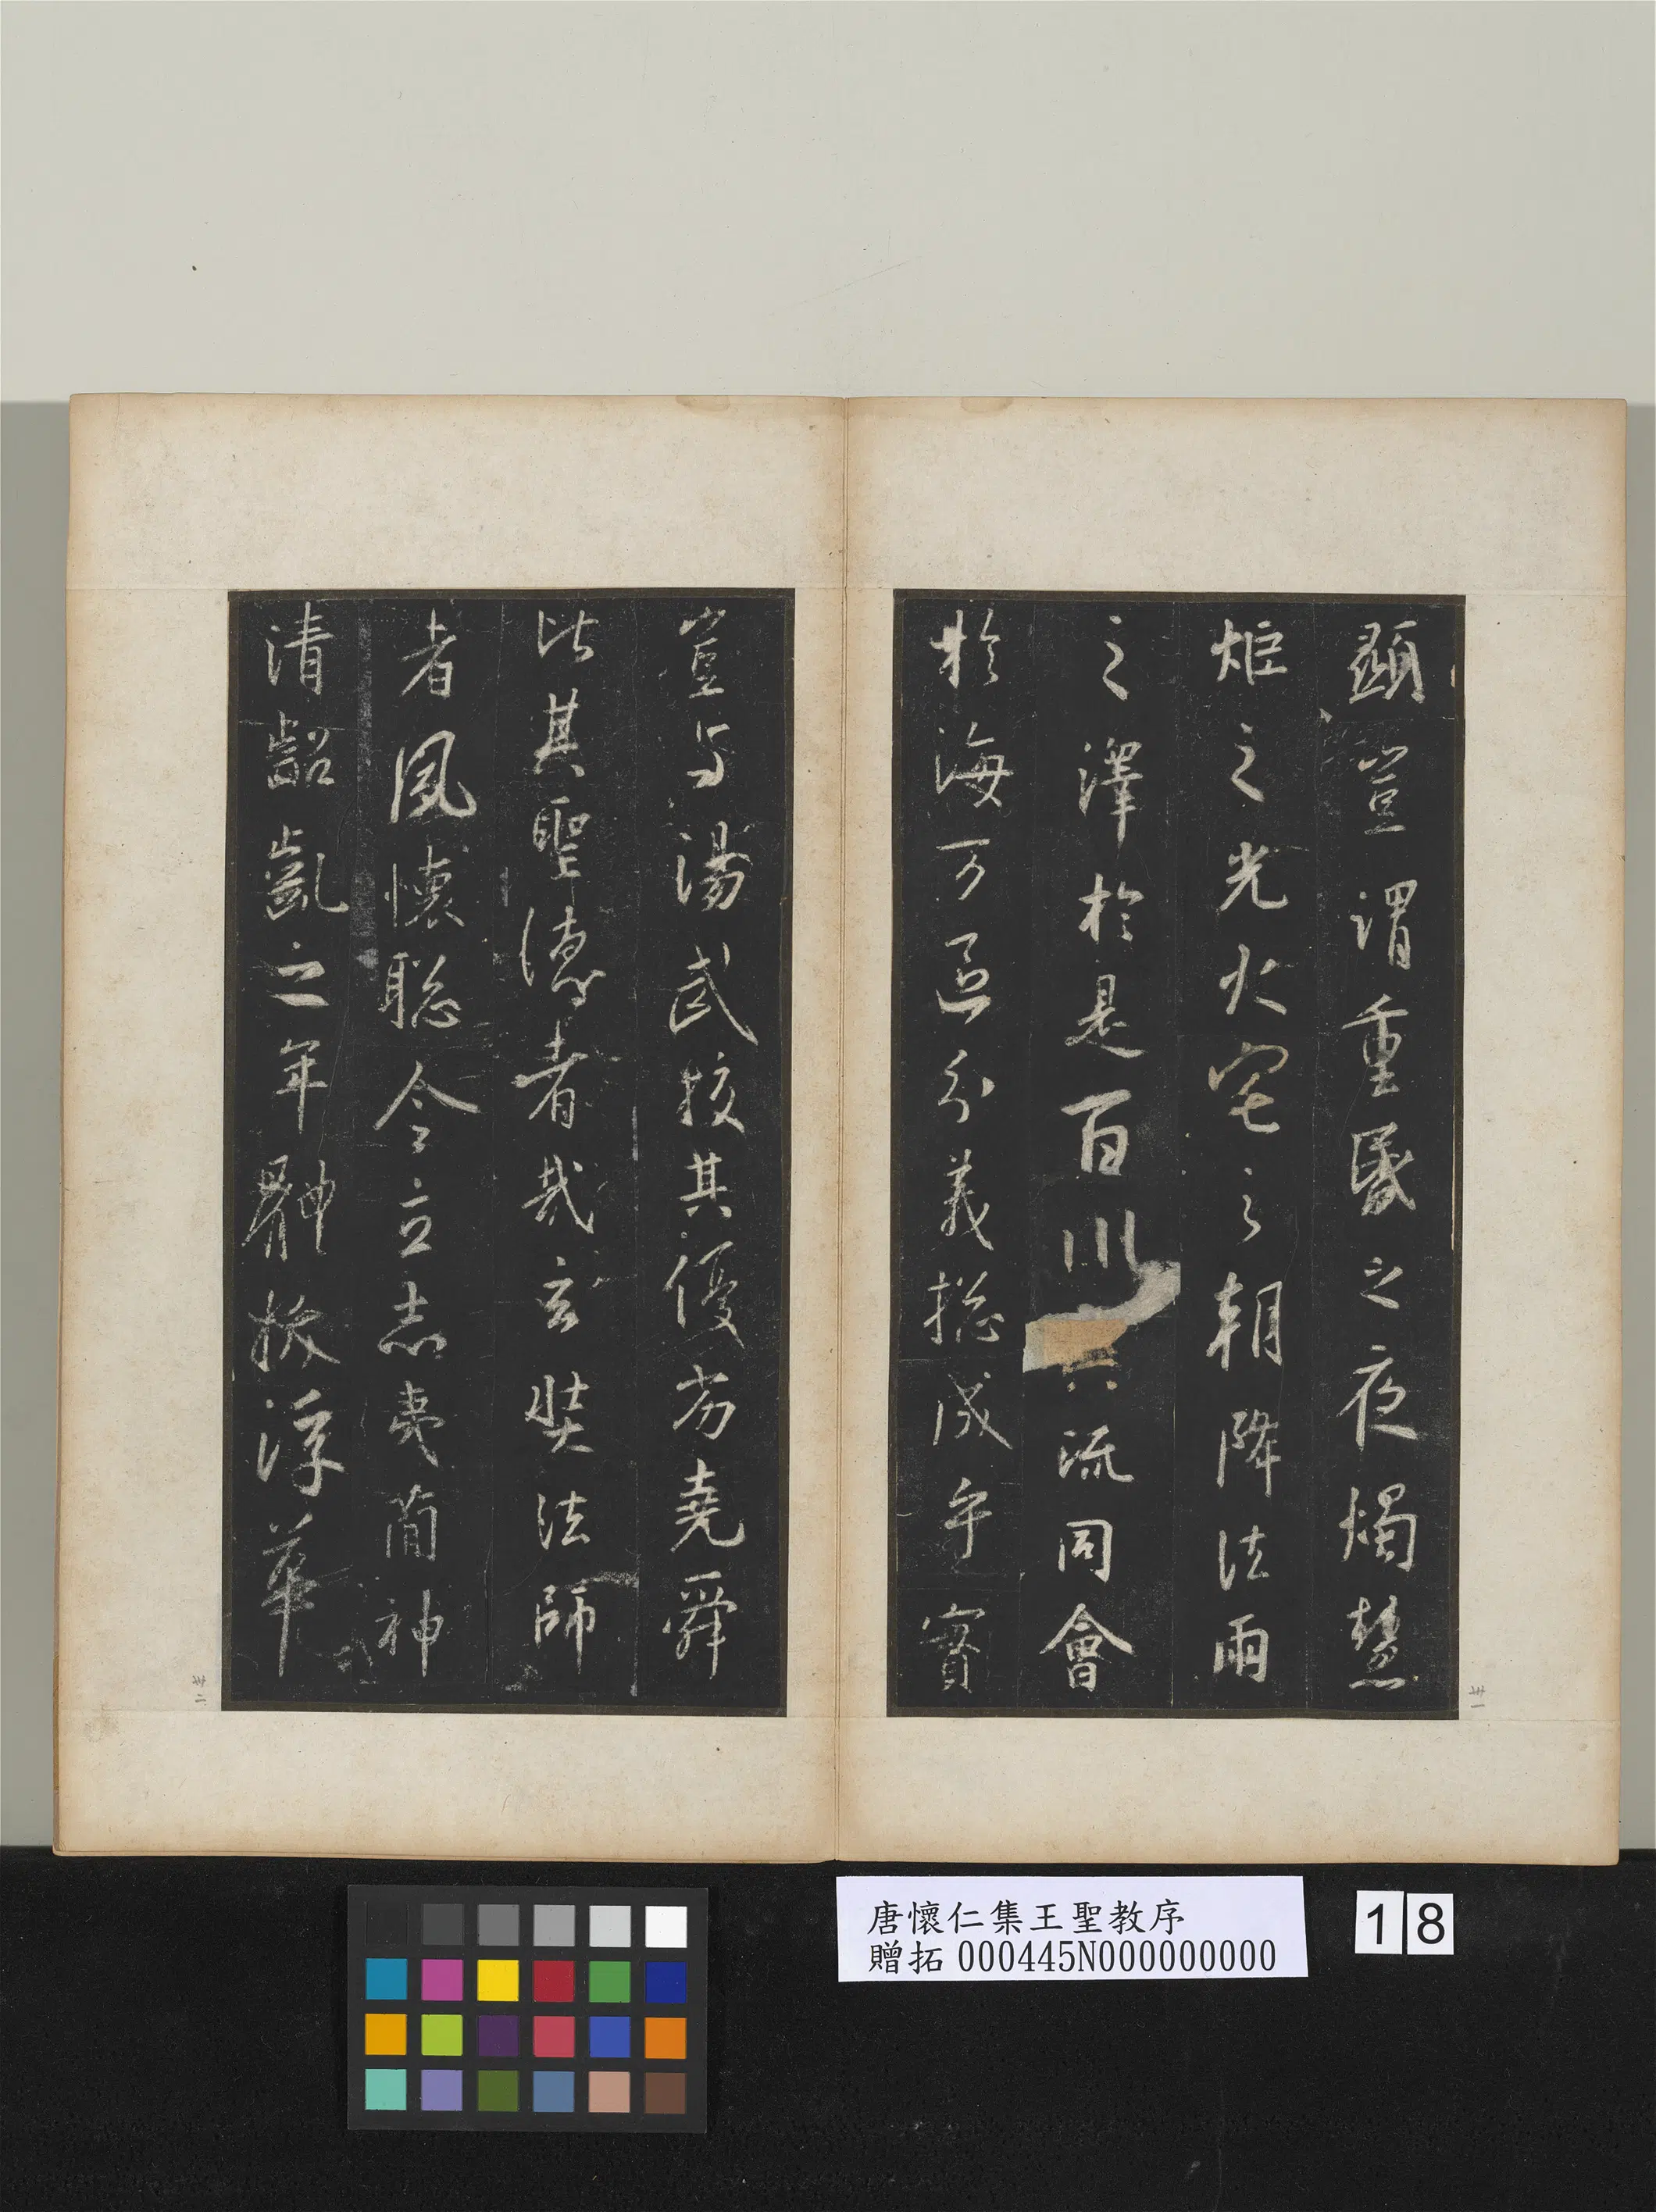 顯豈謂重昏之夜燭慧
炬之光火宅之朝降法雨
之澤於是百川流同會
於海万區分義揔成乎實
豈与湯武校其優劣堯舜
比其聖德者哉玄奘法師
者夙懷聡令立志夷簡神
清齠齔之年體拔浮華
卅一
卅二
唐懷仁集王聖教序
贈拓 000445N000000000
18